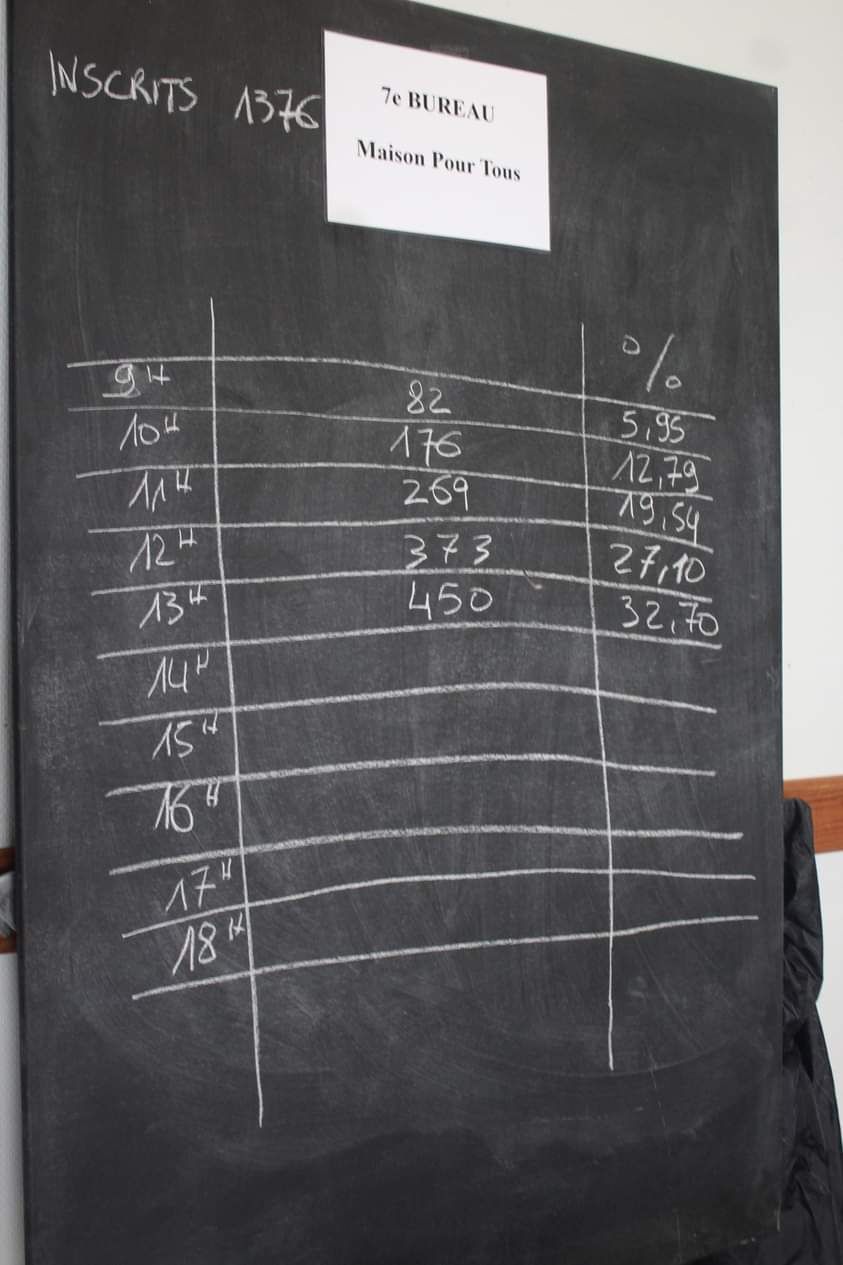 INSCRITS 1376
7e BUREAU
Maison Pour Tous
%
9H 82 5,95
10H 176 12,79
11H 269 19,54
12H 373 27,10
13H 450 32,70
14H
15H
16H
17H
18H